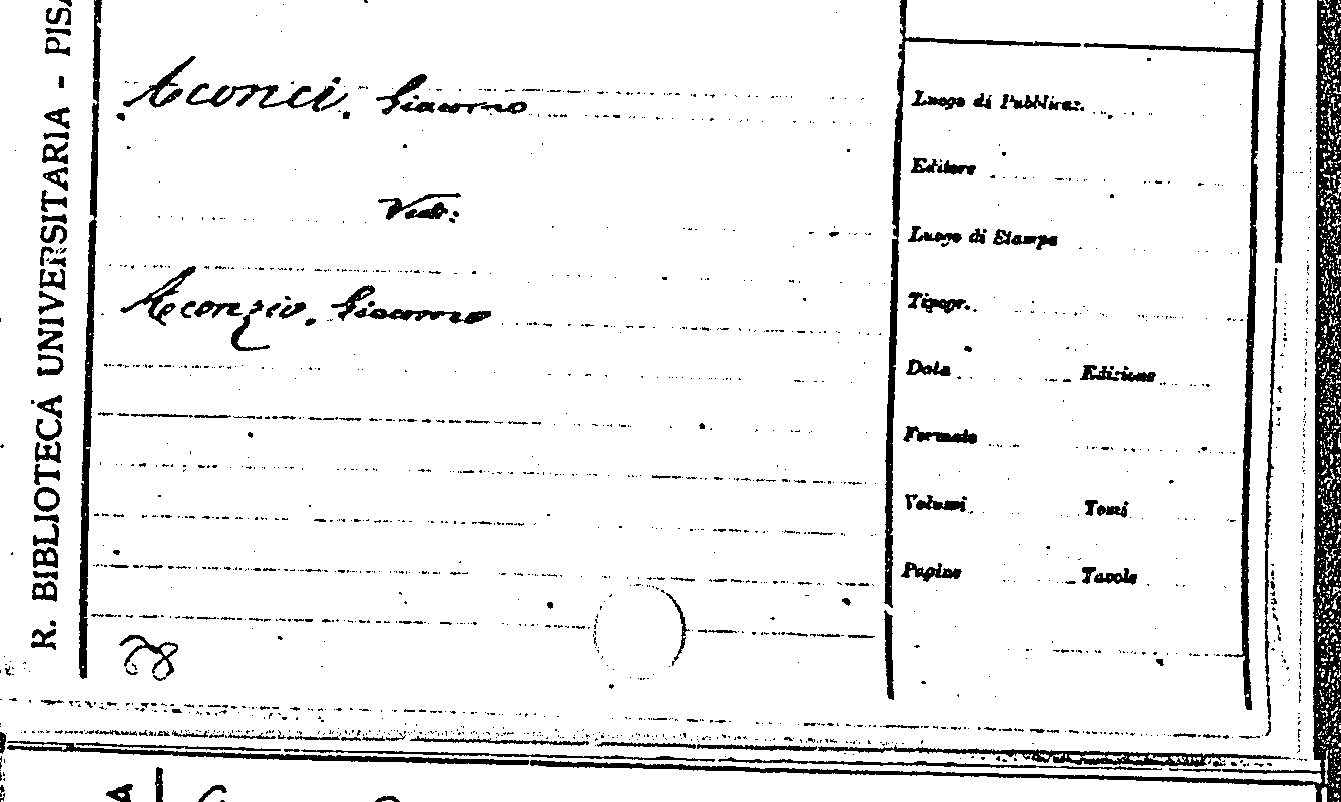 R. BIBLIOTECA UNIVERSITARIA - PISA
Aconci, Giacomo
Vedi:
Aconzio, Giacomo
Luogo di Pubblicaz.
Editore
Luogo di Stampa
Tipogr.
Data Edizione
Formato
Volumi Tomi
Pagine Tavole